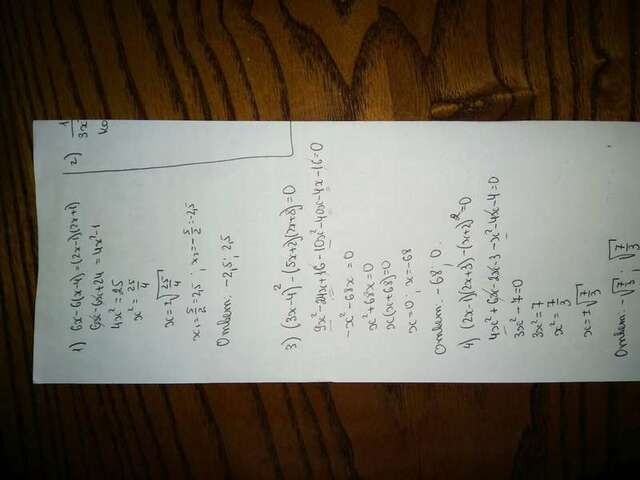 1) 6x-6(x-4)=(2x-1)(2x+1)
6x-6x+24=4x²-1
4x²=25
x²=25/4
x=±√25/4
x₁=5/2=2,5; x₂=-5/2=-2,5
Ответ: -2,5; 2,5
2) 1
3x
3) (3x-4)²-(5x+2)(2x+8)=0
9x²-24x+16-10x²-40x-4x-16=0
-x²-68x=0
x²+68x=0
x(x+68)=0
x=0; x=-68
Ответ: -68; 0.
4) (2x-1)(2x+3)-(x+2)²=0
4x²+6x-2x-3-x²-4x-4=0
3x²-7=0
3x²=7
x²=7/3
x=±√7/3
Ответ: -√7/3; √7/3